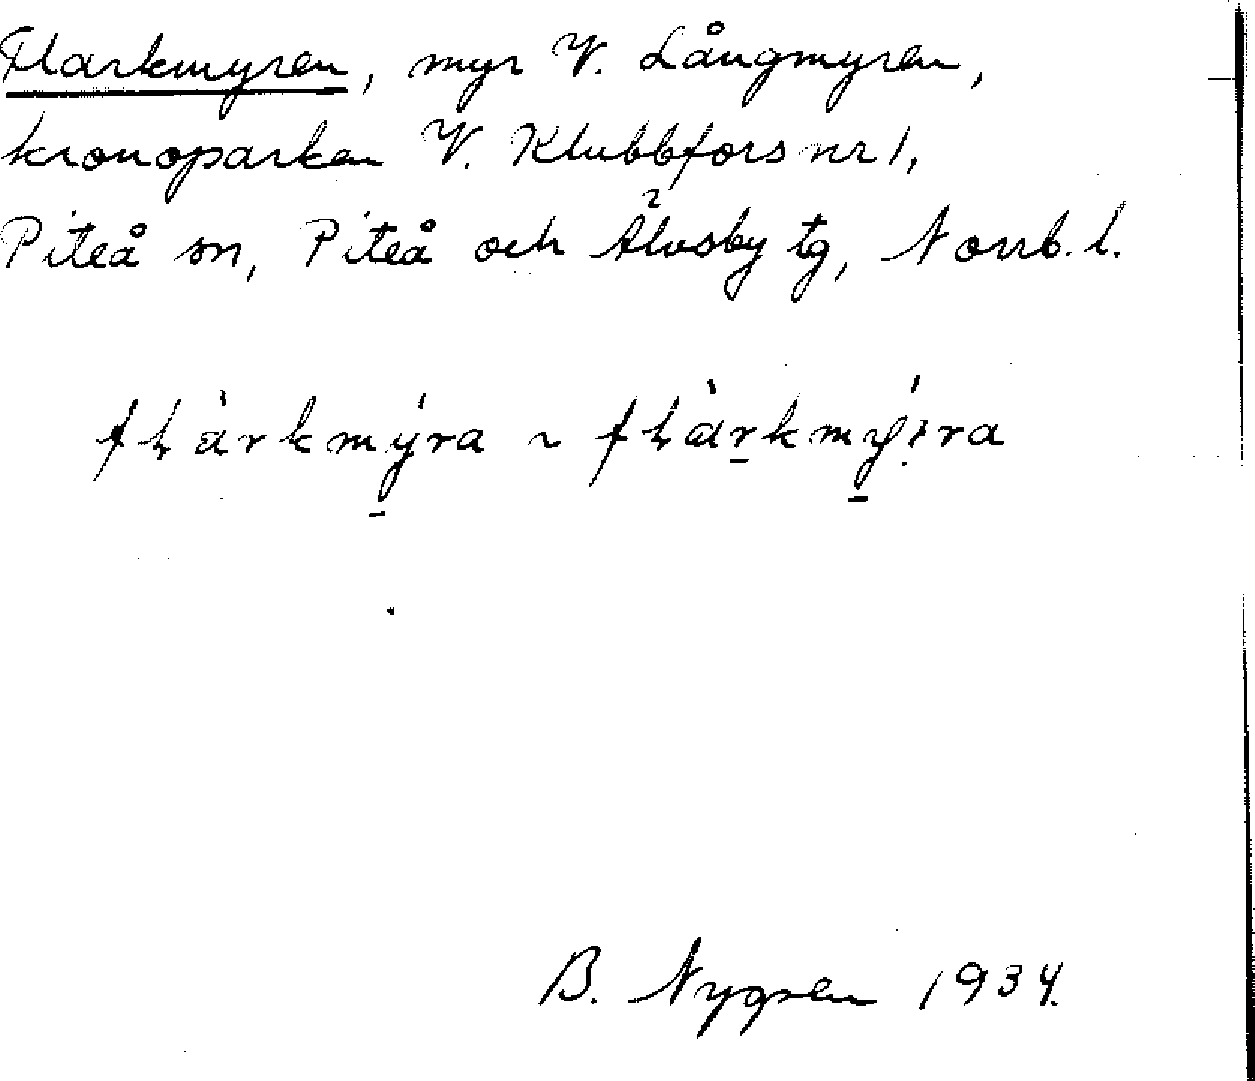 Flarkmyren, myr V. Långmyren,
kronoparken V. Klubbfors nr 1,
Piteå sn, Piteå och Älvsby tg, Norrb. l.
fƚàrkmýra ~ fƚàrkmýra
B. Nygren 1934.